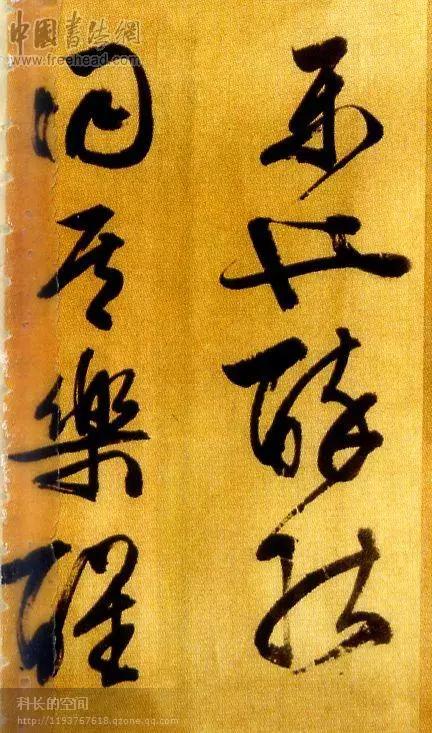 中國書法網
www.freehead.com
乐也醉能
同其樂醒
科长的空间
http://1193767618.qzone.qq.com